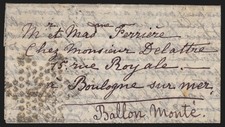 Mr et Madme Ferrière
Chez Monsieur Delattre
75 rue Royale.
à Boulogne sur mer,
Ballon Monté.